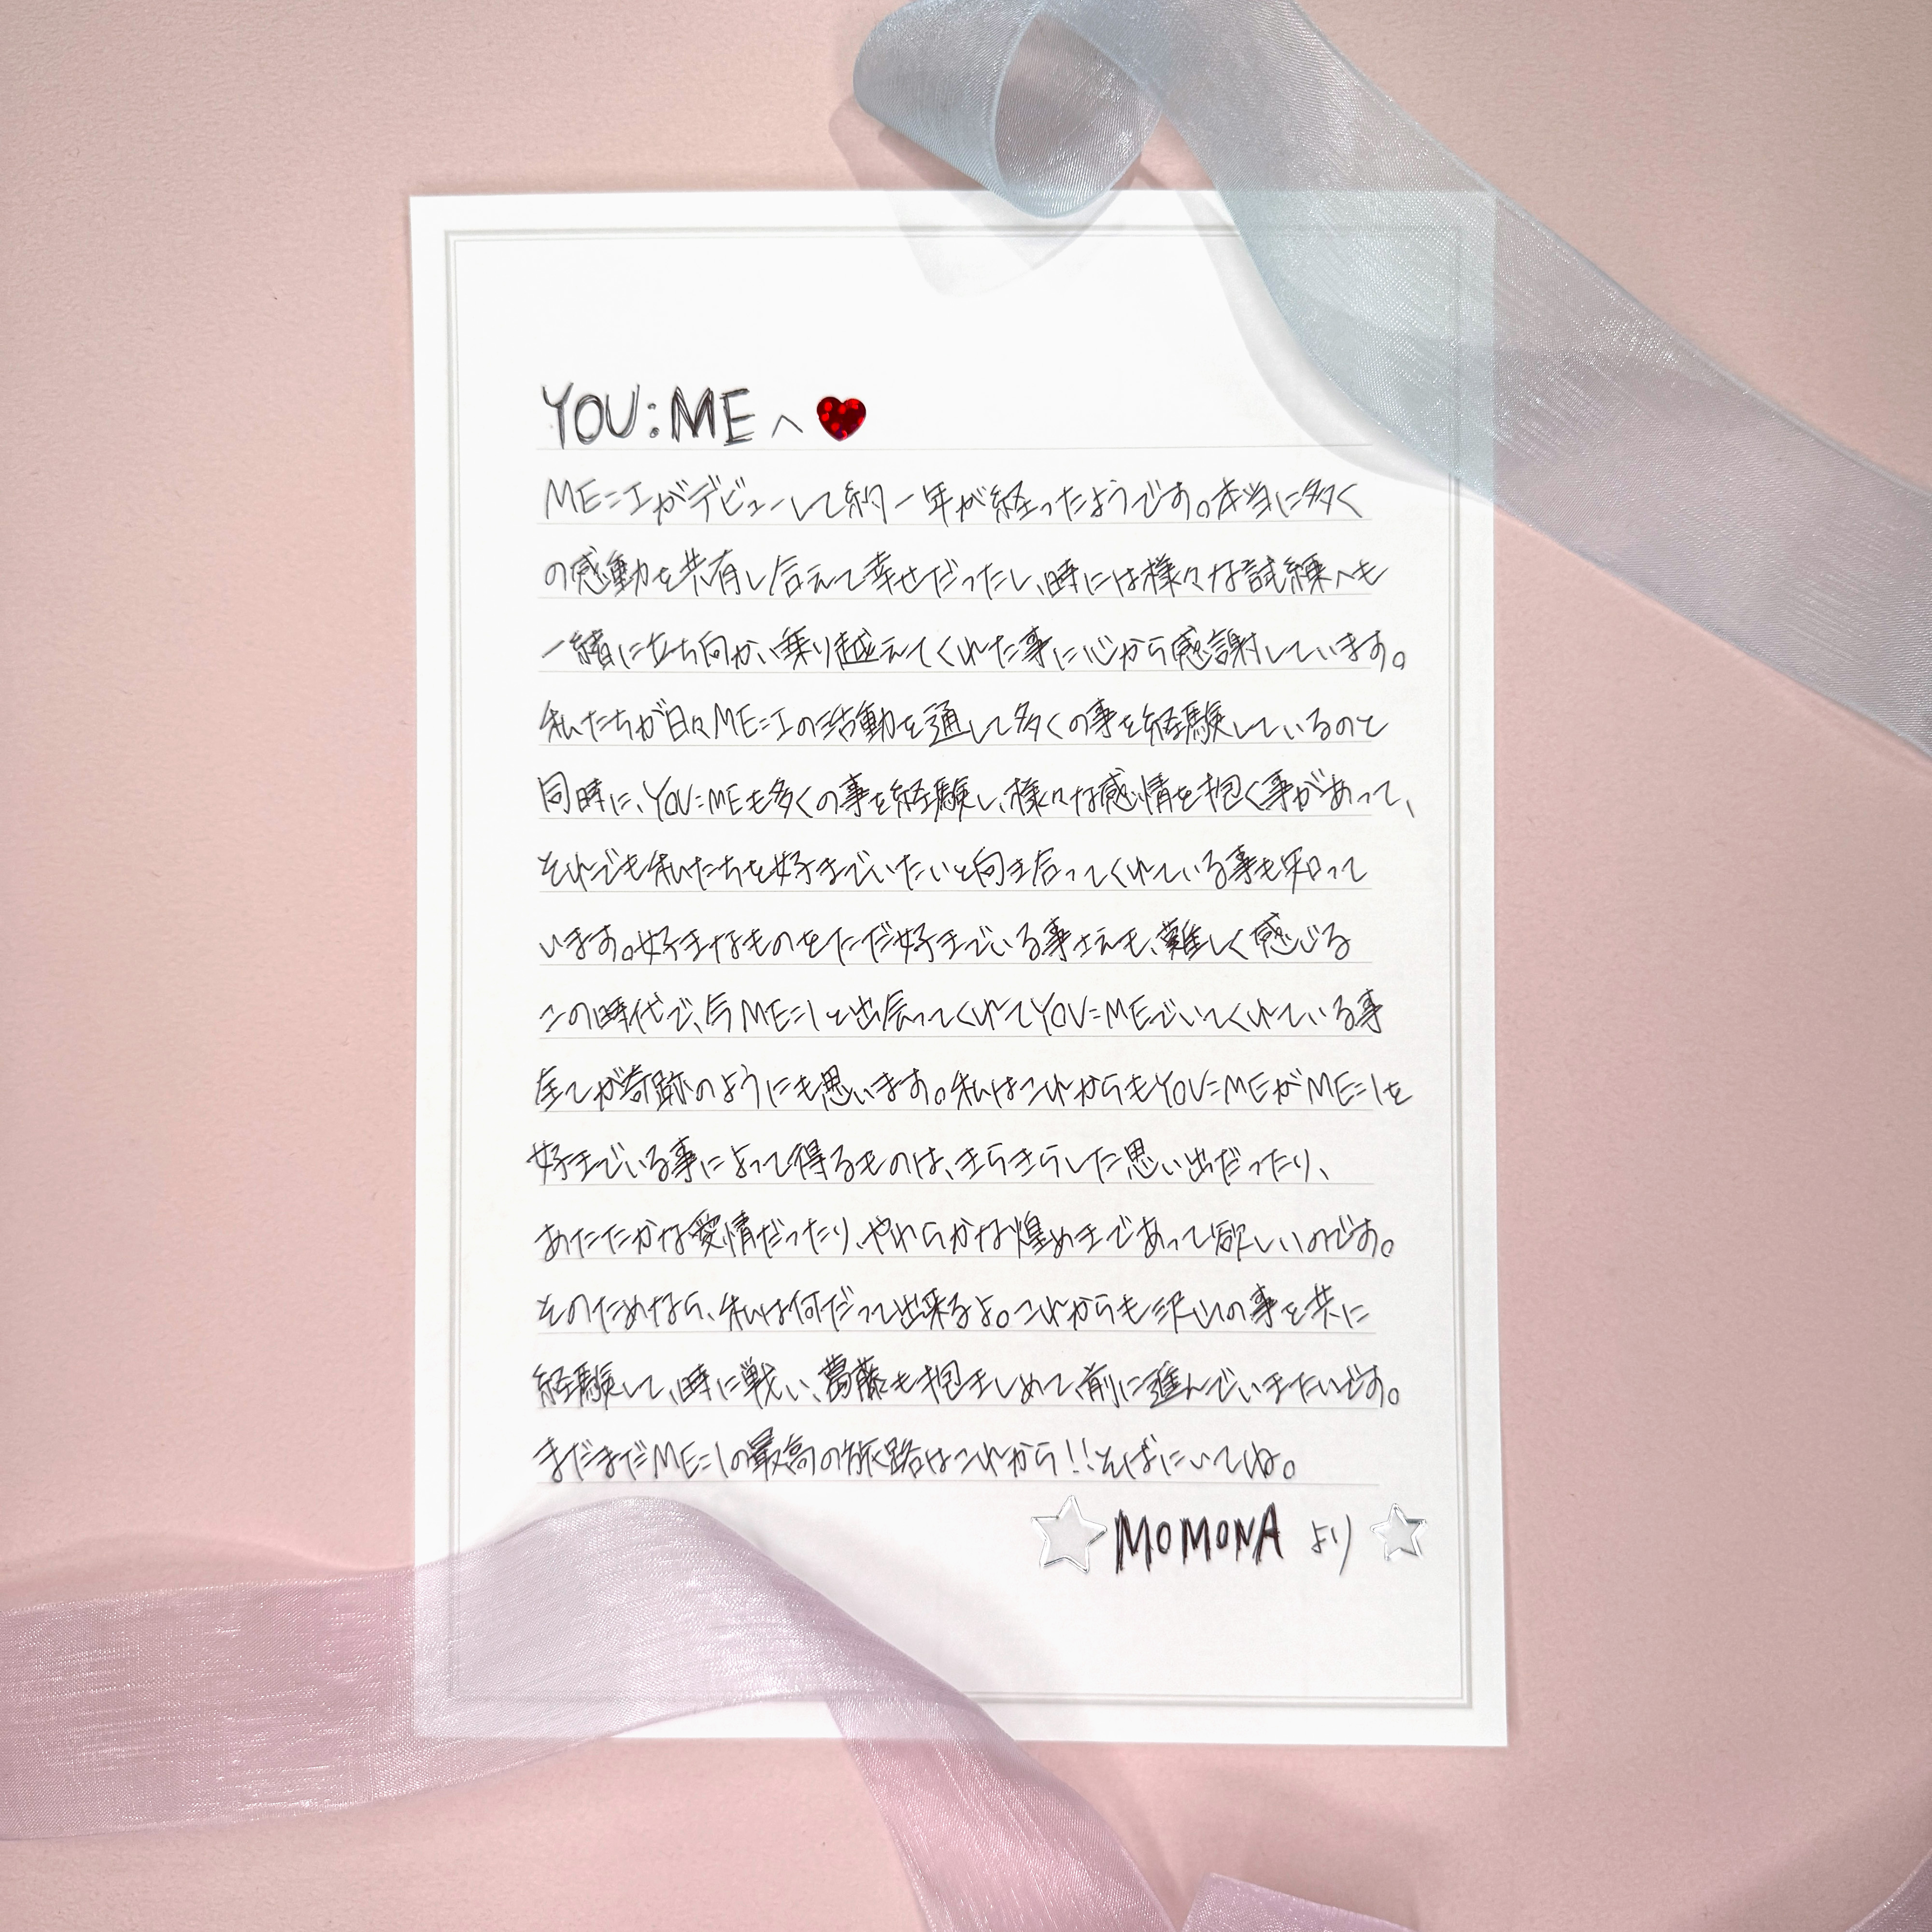 YOU:ME へ
ME=Iがデビューして約一年が経ったようです。本当に多く
の感動を共有し合えて幸せだったし、時には様々な試練へも
一緒に立ち向かい乗り越えてくれた事に心から感謝しています。
私たちが日々ME=Iの活動を通して多くの事を経験しているのと
同時に、YOU=MEも多くの事を経験し、様々な感情を抱く事があって、
それでも私たちを好きでいたいと向き合ってくれている事も知って
います。好きなものをただ好きでいる事さえも、難しく感じる
この時代で、今ME=Iと出会ってくれてYOU=MEでいてくれている事
全てが奇跡のようにも思います。私はこれからもYOU=MEがME=Iを
好きでいる事によって得るものは、きらきらした思い出だったり、
あたたかな愛情だったり、やわらかな煌めきであって欲しいのです。
そのためなら、私は何だって出来るよ。これからも沢山の事を共に
経験して、時に戦い、葛藤も抱きしめて前に進んでいきたいです。
まだまだME=Iの最高の旅路はこれから!!そばにいてね。
MOMONA より